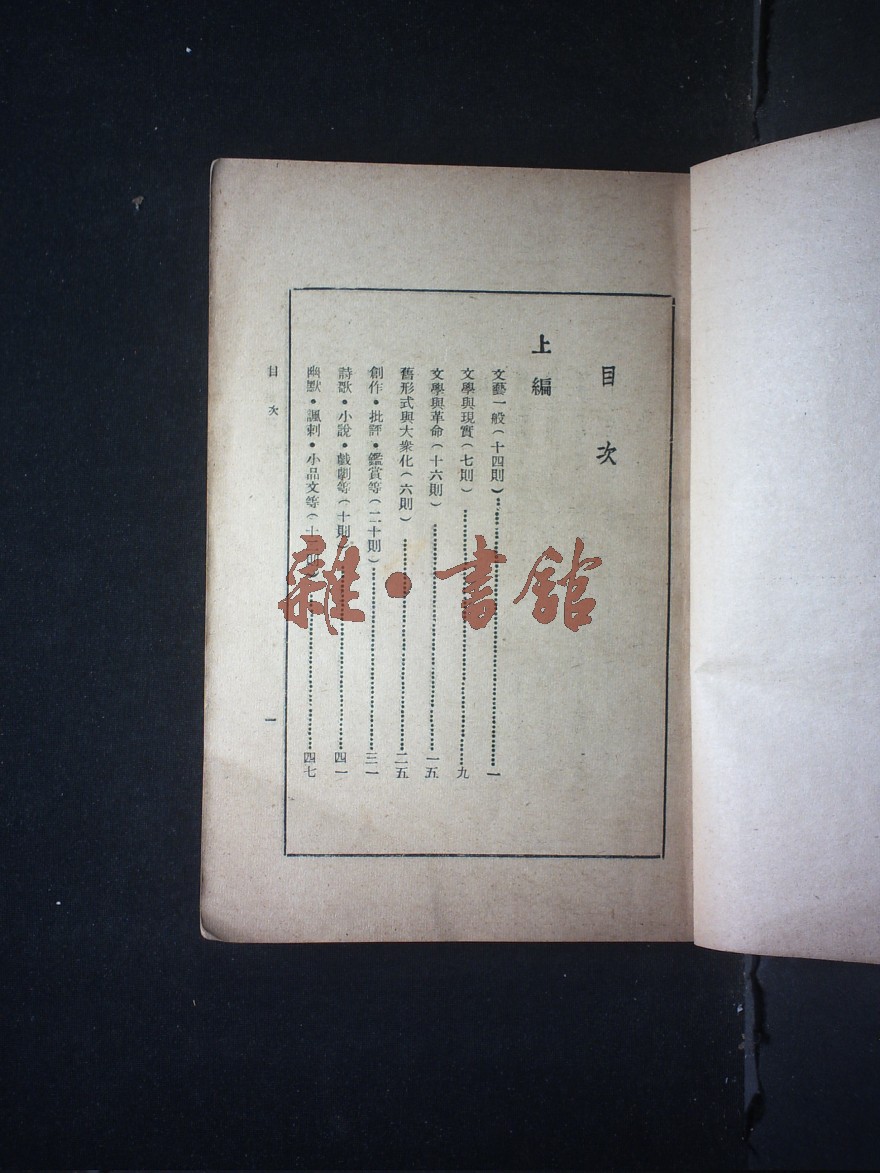 目次
上編
文藝一般(十四則)…………一
文學與現實(七則)…………九
文學與革命(十六則)…………一五
舊形式與大衆化(六則)…………二五
創作•批評•鑑賞等(二十則)…………三一
詩歌•小說•戲劇等(十則)…………四一
幽默•諷刺•小品文等(十 則)…………四七
目次
一
雜•書館